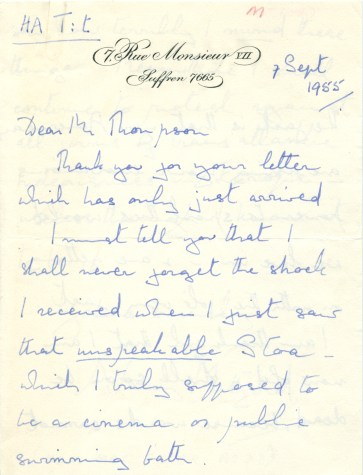 HA T: t
7, Rue Monsieur VII
Suffren 7665
7 Sept
1955
Dear Mr Thompson
Thank you for your letter
which has only just arrived
I must tell you that I
shall never forget the shock
I received when I first saw
that unspeakable Stoa –
which I truly supposed to
be a cinema or public
swimming bath.